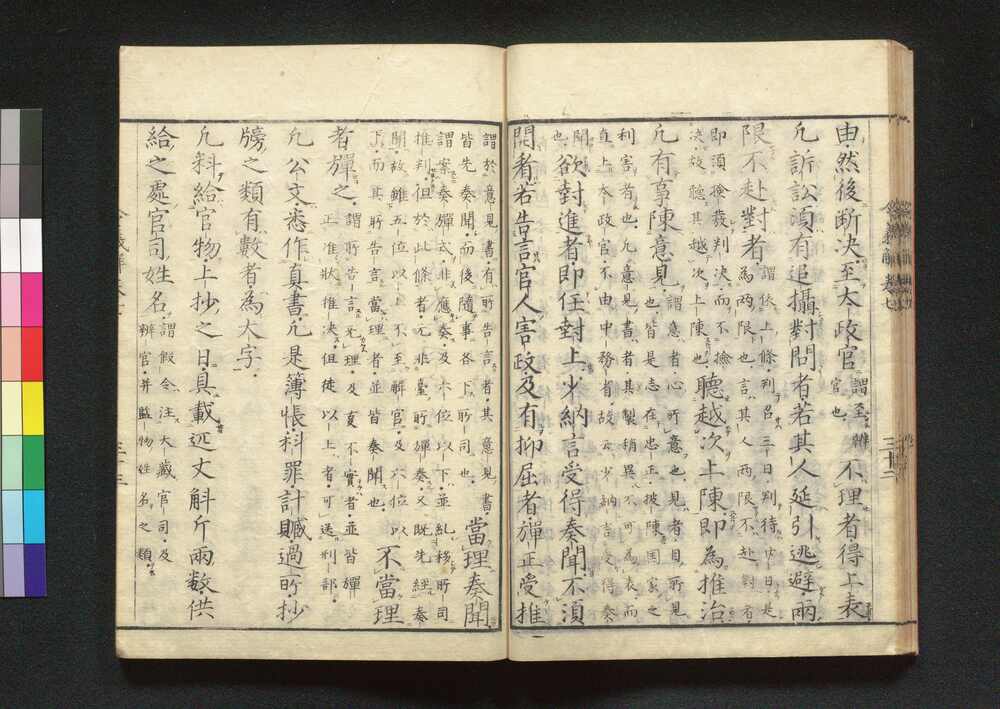 由然後断決至太政官謂至辨官也不理者得上表
凢訴訟須有追攝對問者若其人延引逃避兩
限不赴對者謂依上條判召三日判待廿日是為兩限也言其人兩限不赴對者
即須撿發判決而不撿決故聽其越次上陳也聽越次上陳即為推治
凢有事陳意見謂意者心所意也見者目所見也皆是志在忠正披陳国家之
利害者也凢意見書者其製稍異不可為表而直上太政官不由中務省故云少納言受得奏
聞也欲封進者即任封上少納言受得奏聞不須
開看若告言官人害政及有抑屈者彈正受推
謂於意見書有所告言者其意見書皆先奏聞而後隨事各下所司也當理奏聞
謂案奏彈式非應奏及六位以下並糺移所司推判但於此條者元非臺所彈奏又既先經奏
聞故雖五位以上不至解官及六位以下而其所告言當理者並皆奏聞也不當理
者彈之謂所告言无理及夏不實者並皆彈正准狀推决但徒以上者可送刑部
凢公文悉作真書凢是簿帳科罪計贓過所抄
牓之類有數者為大字
凢料給官物上抄之日具載远丈斛斤兩数供
給之處官司姓名謂假令注大藏官司及辨官并監物姓名之類
三十二